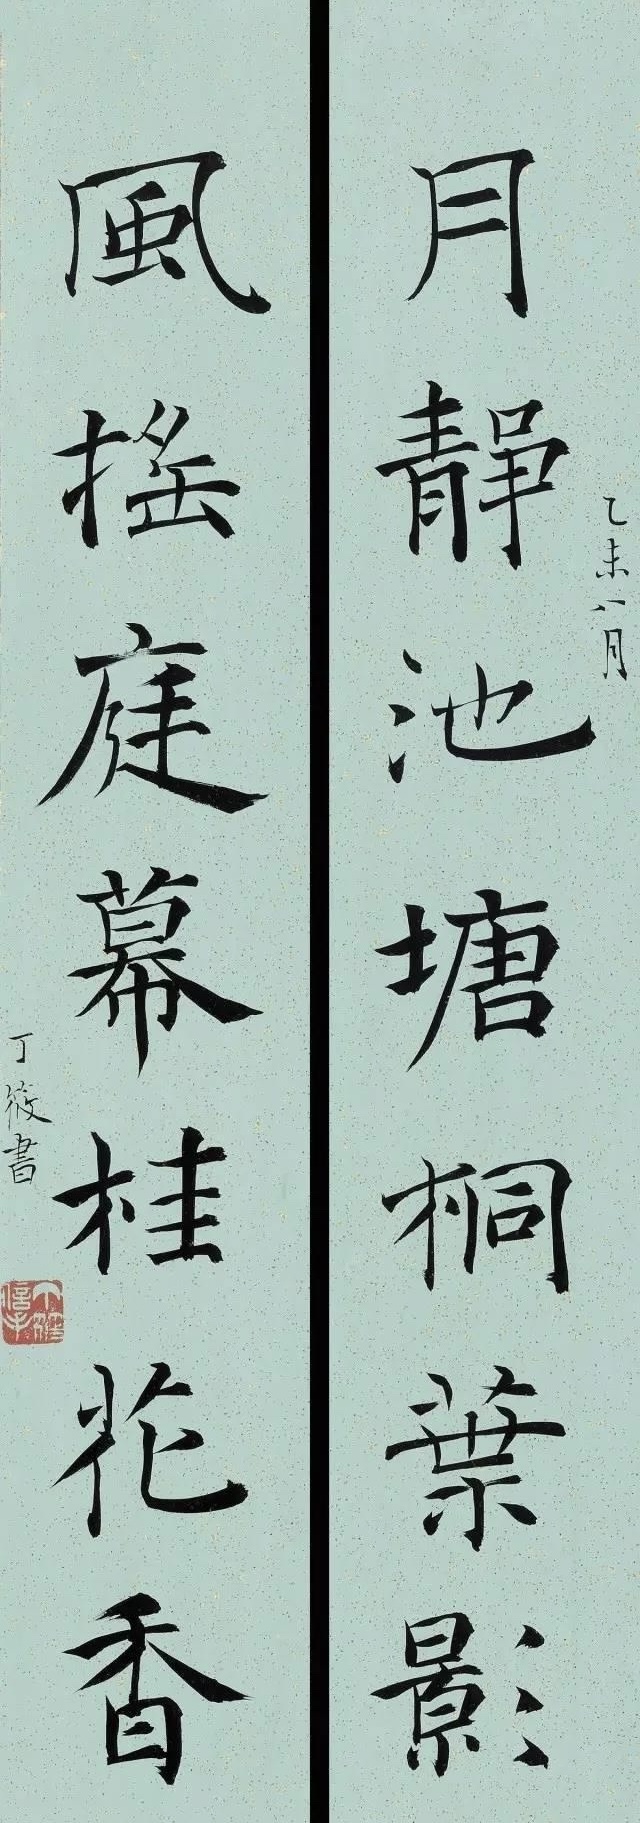 月靜池塘桐葉影
乙未八月
風搖庭幕桂花香
丁筱書